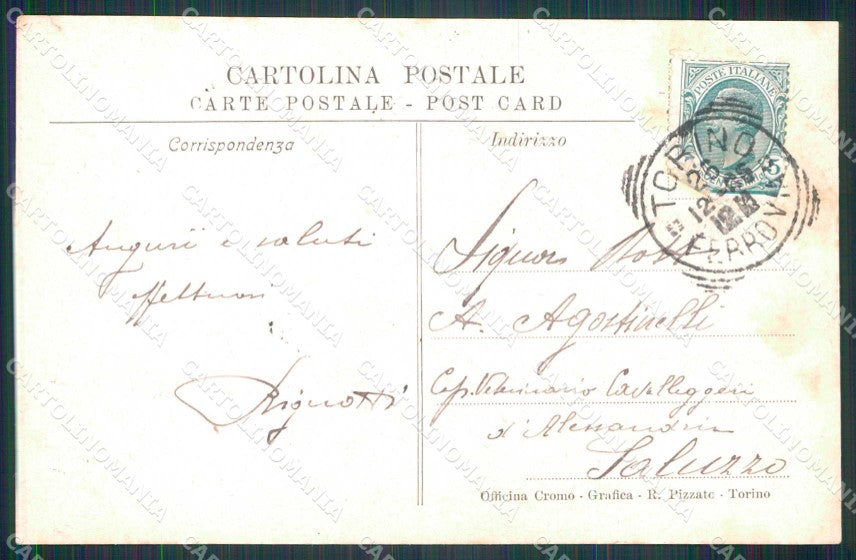 CARTOLINA POSTALE
CARTE POSTALE - POST CARD
Corrispondenza
Indirizzo
POSTE ITALIANE
5
TORINO
FERROVIA
12
Auguri e saluti
affettuosi
Rignotti
Signor Dott
A. Agostinelli
Cap. Veterinario Cavalleggeri
d'Alessandria
Saluzzo
Officina Cromo - Grafica - R. Pizzato - Torino
CARTOLINOMANIA